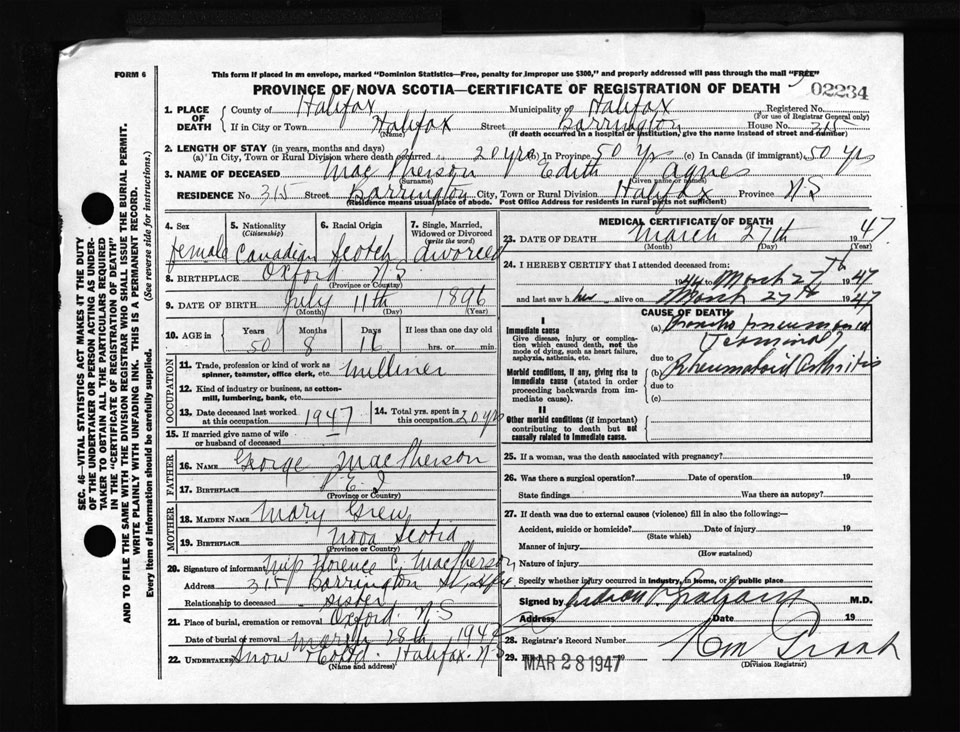 FORM 6
This form if placed in an envelope, marked "Dominion Statistics—Free, penalty for improper use $300," and properly addressed will pass through the mail "FREE"
PROVINCE OF NOVA SCOTIA—CERTIFICATE OF REGISTRATION OF DEATH
02234
1. PLACE OF DEATH
County of Halifax Municipality of Halifax Registered No.
(For use of Registrar General only)
If in City or Town Halifax Street Barrington House No. 315
(Name) (If death occurred in a hospital or institution, give the name instead of street and number)
2. LENGTH OF STAY (in years, months and days)
(a) In City, Town or Rural Division where death occurred 20 yrs (b) In Province 50 yrs (c) In Canada (if immigrant) 50 yrs
3. NAME OF DECEASED MacPherson Edith Agnes
(Surname) (Given name or names)
RESIDENCE No. 315 Street Barrington City, Town or Rural Division Halifax Province N.S
(Residence means usual place of abode. Post Office Address for residents in rural parts not sufficient)
4. Sex
female
5. Nationality
(Citizenship)
Canadian
6. Racial Origin
Scotch
7. Single, Married, Widowed or Divorced
(write the word)
divorced
8. BIRTHPLACE Oxford N.S.
(Province or Country)
9. DATE OF BIRTH July 11th 1896
(Month) (Day) (Year)
10. AGE in
Years Months Days If less than one day old
50 8 16 hrs. or min.
OCCUPATION
11. Trade, profession or kind of work as spinner, teamster, office clerk, etc. Milliner
12. Kind of industry or business, as cotton-mill, lumbering, bank, etc.
13. Date deceased last worked at this occupation 1947
14. Total yrs. spent in this occupation 20 yrs
15. If married give name of wife or husband of deceased
FATHER
16. NAME George MacPherson
17. BIRTHPLACE P.E.I
(Province or Country)
MOTHER
18. MAIDEN NAME Mary Grew
19. BIRTHPLACE Nova Scotia
(Province or Country)
20. Signature of informant Florence C. MacPherson
Address 315 Barrington St
Relationship to deceased sister
21. Place of burial, cremation or removal Oxford. N.S
Date of burial or removal March 28th, 1947
22. UNDERTAKER Snow Halifax. N.S
(Name and address)
MEDICAL CERTIFICATE OF DEATH
23. DATE OF DEATH March 27th 1947
(Month) (Day) (Year)
24. I HEREBY CERTIFY that I attended deceased from:
1946 to March 27th 1947
and last saw her alive on March 27th 1947
CAUSE OF DEATH
I
Immediate cause
Give disease, injury or complication which caused death, not the mode of dying, such as heart failure, asphyxia, asthenia, etc.
(a) Broncho pneumonia
(Terminal)
due to
Morbid conditions, if any, giving rise to immediate cause (stated in order proceeding backwards from immediate cause).
(b) Rheumatoid Arthritis
due to
(c)
II
Other morbid conditions (if important) contributing to death but not causally related to immediate cause.
25. If a woman, was the death associated with pregnancy?
26. Was there a surgical operation? Date of operation 19
State findings Was there an autopsy?
27. If death was due to external causes (violence) fill in also the following:—
Accident, suicide or homicide? Date of injury 19
(State which)
Manner of injury
(How sustained)
Nature of injury
Specify whether injury occurred in industry, in home, or in public place
Signed by M.D.
Address Date 19
28. Registrar's Record Number
29. MAR 28 1947
(Division Registrar)
SEC. 46—VITAL STATISTICS ACT MAKES IT THE DUTY
OF THE UNDERTAKER OR PERSON ACTING AS UNDER-
TAKER TO OBTAIN ALL THE PARTICULARS REQUIRED
IN THE "CERTIFICATE OF REGISTRATION OF DEATH"
AND TO FILE THE SAME WITH THE DIVISION REGISTRAR WHO SHALL ISSUE THE BURIAL PERMIT.
WRITE PLAINLY WITH UNFADING INK. THIS IS A PERMANENT RECORD.
Every item of information should be carefully supplied. (See reverse side for instructions.)